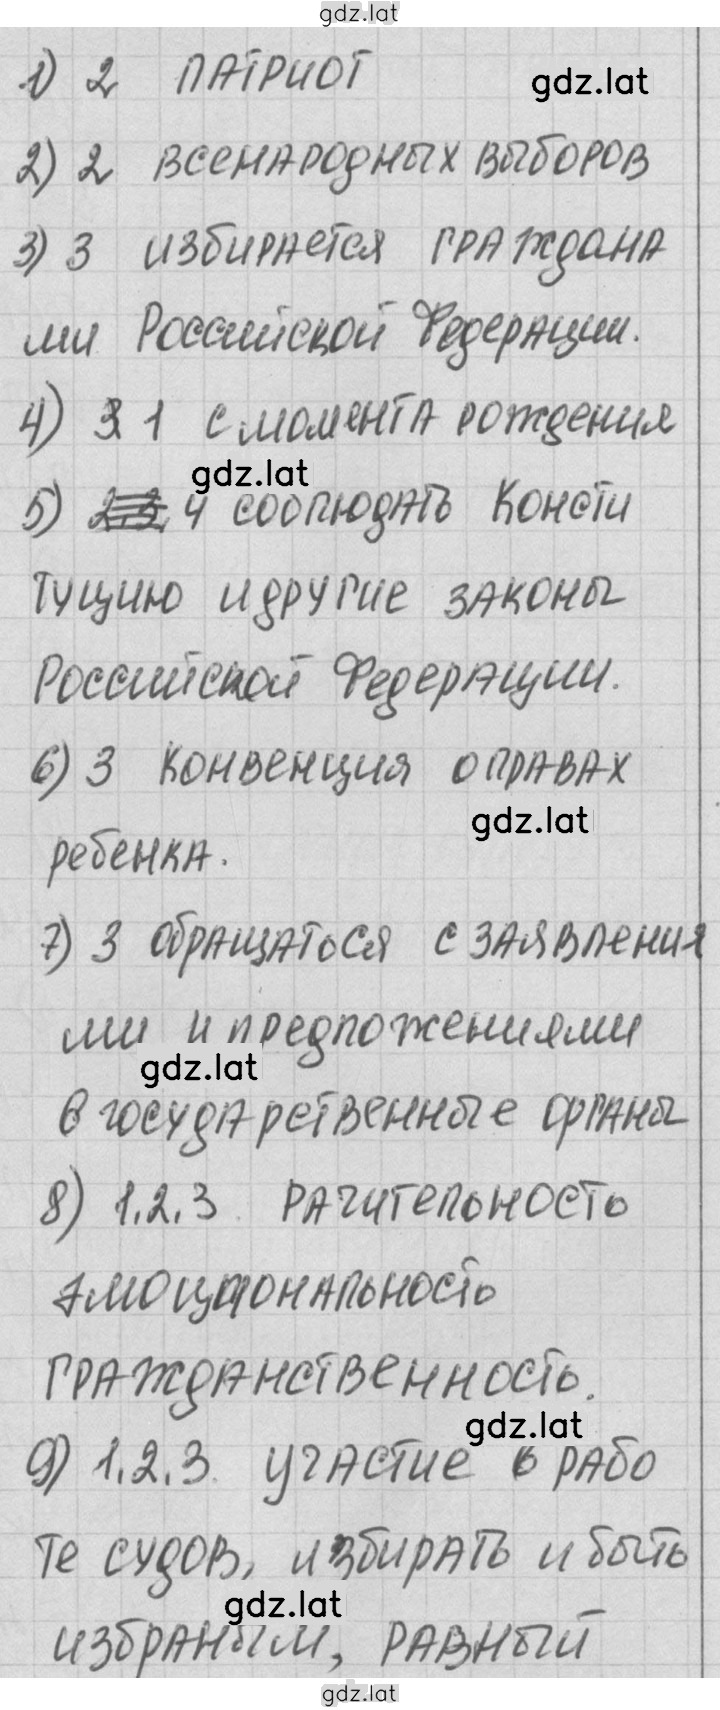 gdz.lat
1) 2 ПАТРИОТ
gdz.lat
2) 2 ВСЕНАРОДНЫХ ВЫБОРОВ
3) 3 избирается ГРАЖДАНА
ми Российской Федерации.
4) 1 с момента рождения
gdz.lat
5) 2,3, 4 соблюдать Консти
туцию и другие законы
Российской Федерации.
6) 3 конвенция о правах
gdz.lat
ребенка.
7) 3 обращаться с заявления
ми и предложениями
gdz.lat
в государственные органы
8) 1,2,3. РАЧИТЕЛЬНОСТЬ
эмоциональность
ГРАЖДАНСТВЕННОСТЬ.
gdz.lat
9) 1,2,3. участие в рабо
те судов, избирать и быть
gdz.lat
избраным, РАВНЫЙ
gdz.lat